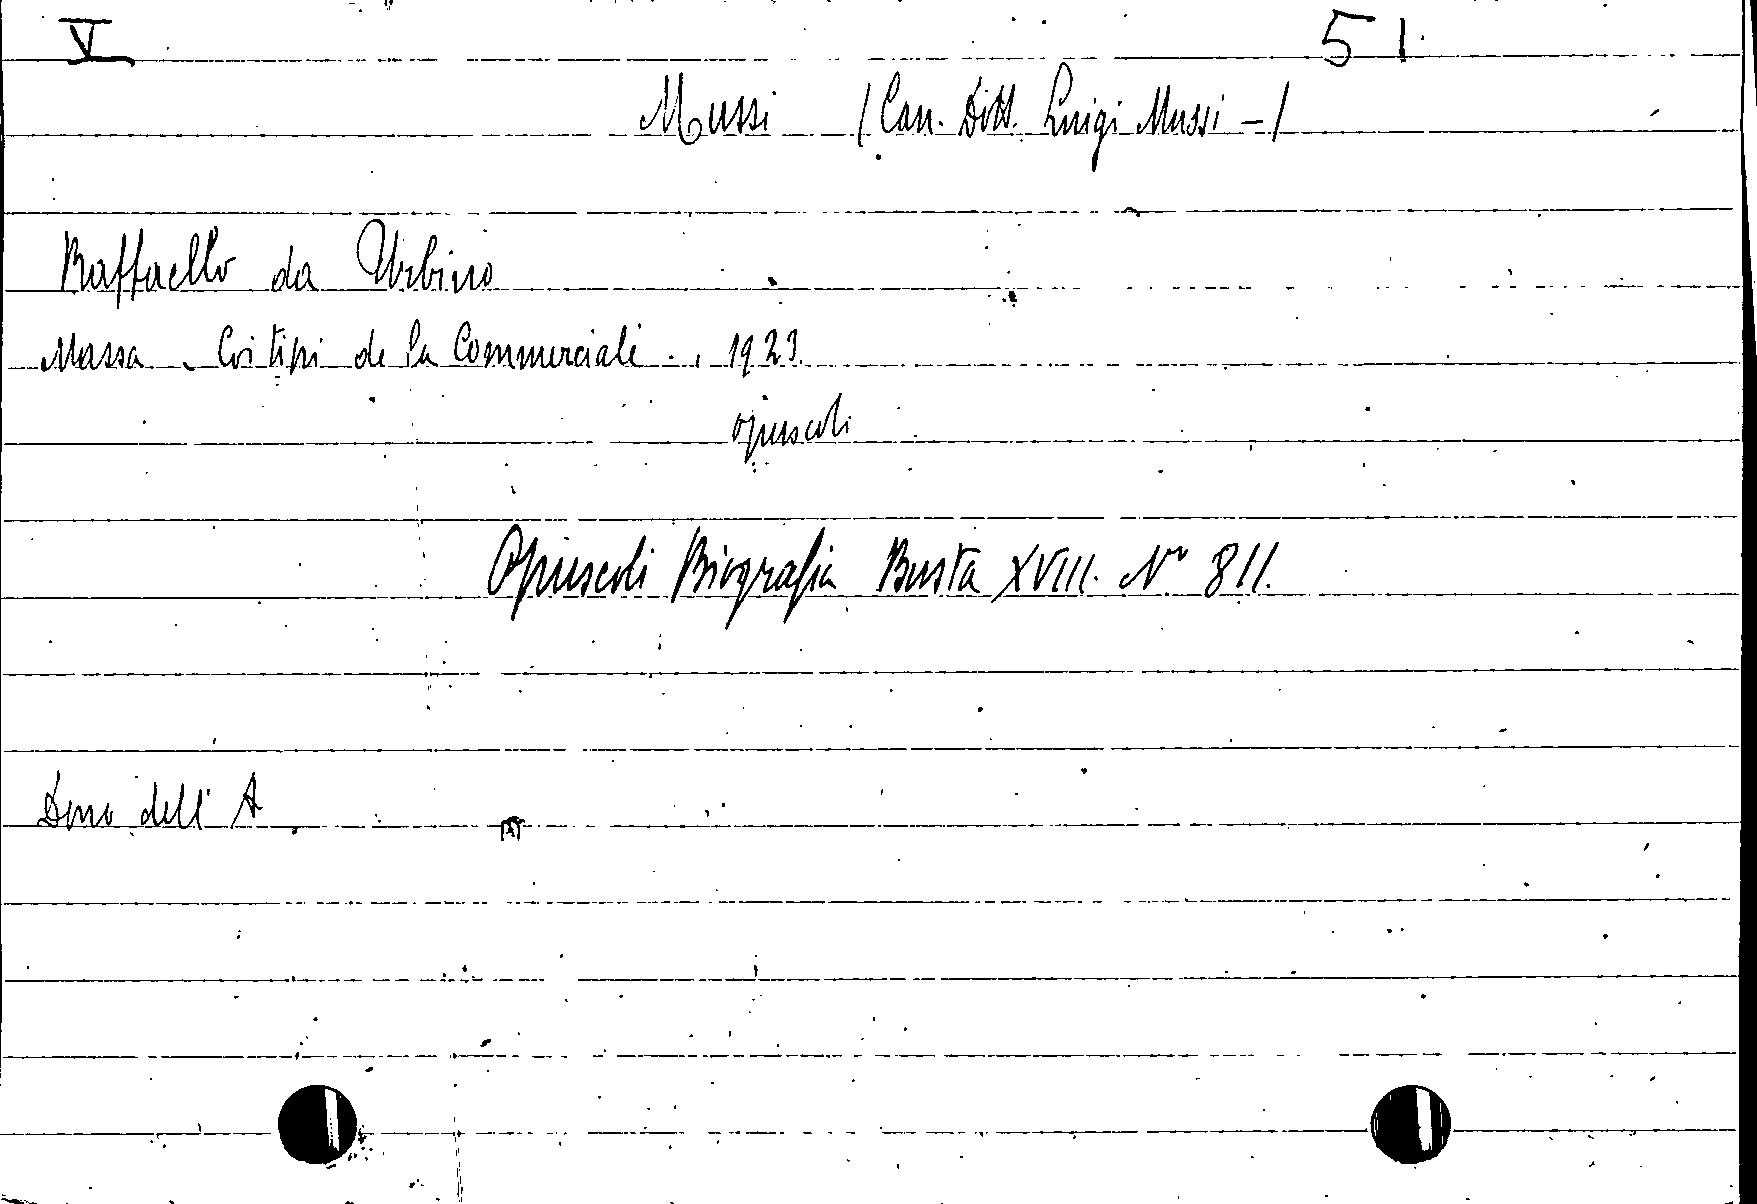 V 51.
Mussi (Can. Dott. Luigi Mussi -)
Raffaello da Urbino
Massa. Coi tipi de la Commerciale., 1923.
opuscoli
Opuscoli Biografia Busta XVIII. Nº 811.
Dono dell'A.